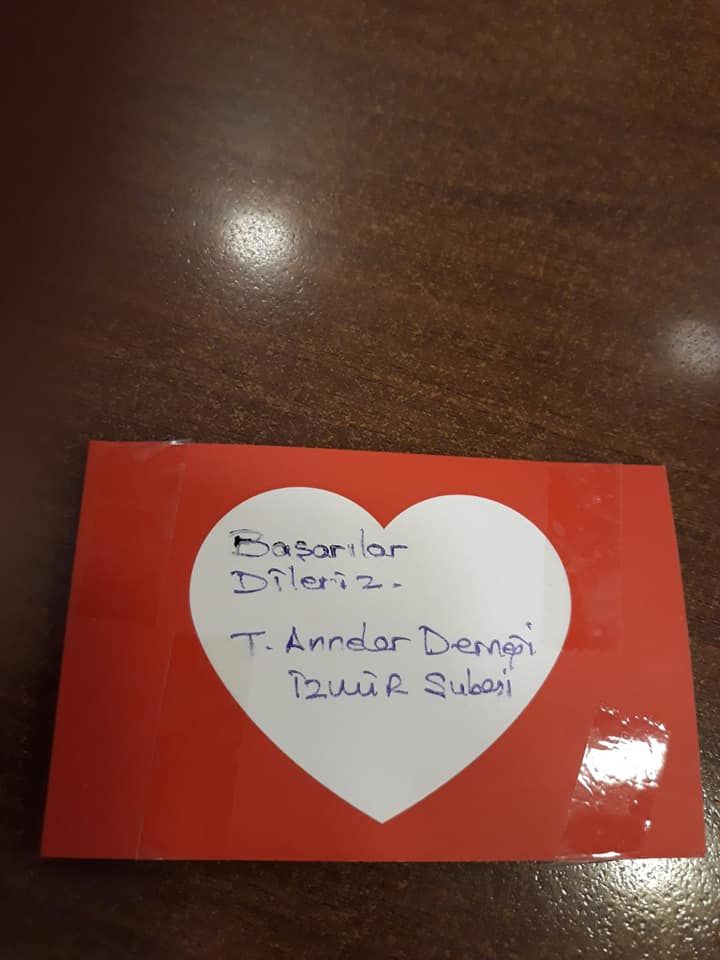 Başarılar
Dileriz.
T. Anneler Derneği
İzmir Şubesi